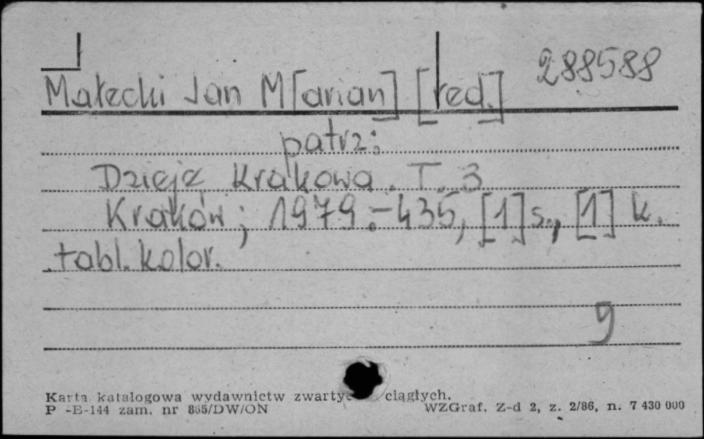 288588
Małecki Jan M[arian] [red.]
patrz:
Dzieje Krakowa. T. 3
Kraków; 1979.-435, [1] s., [1] k.
tabl. kolor.
9
Karta katalogowa wydawnictw ciągłych.
P -E-144 zam. nr 865/DW/ON WZGraf. Z-d 2, z. 2/86, n. 7 430 000